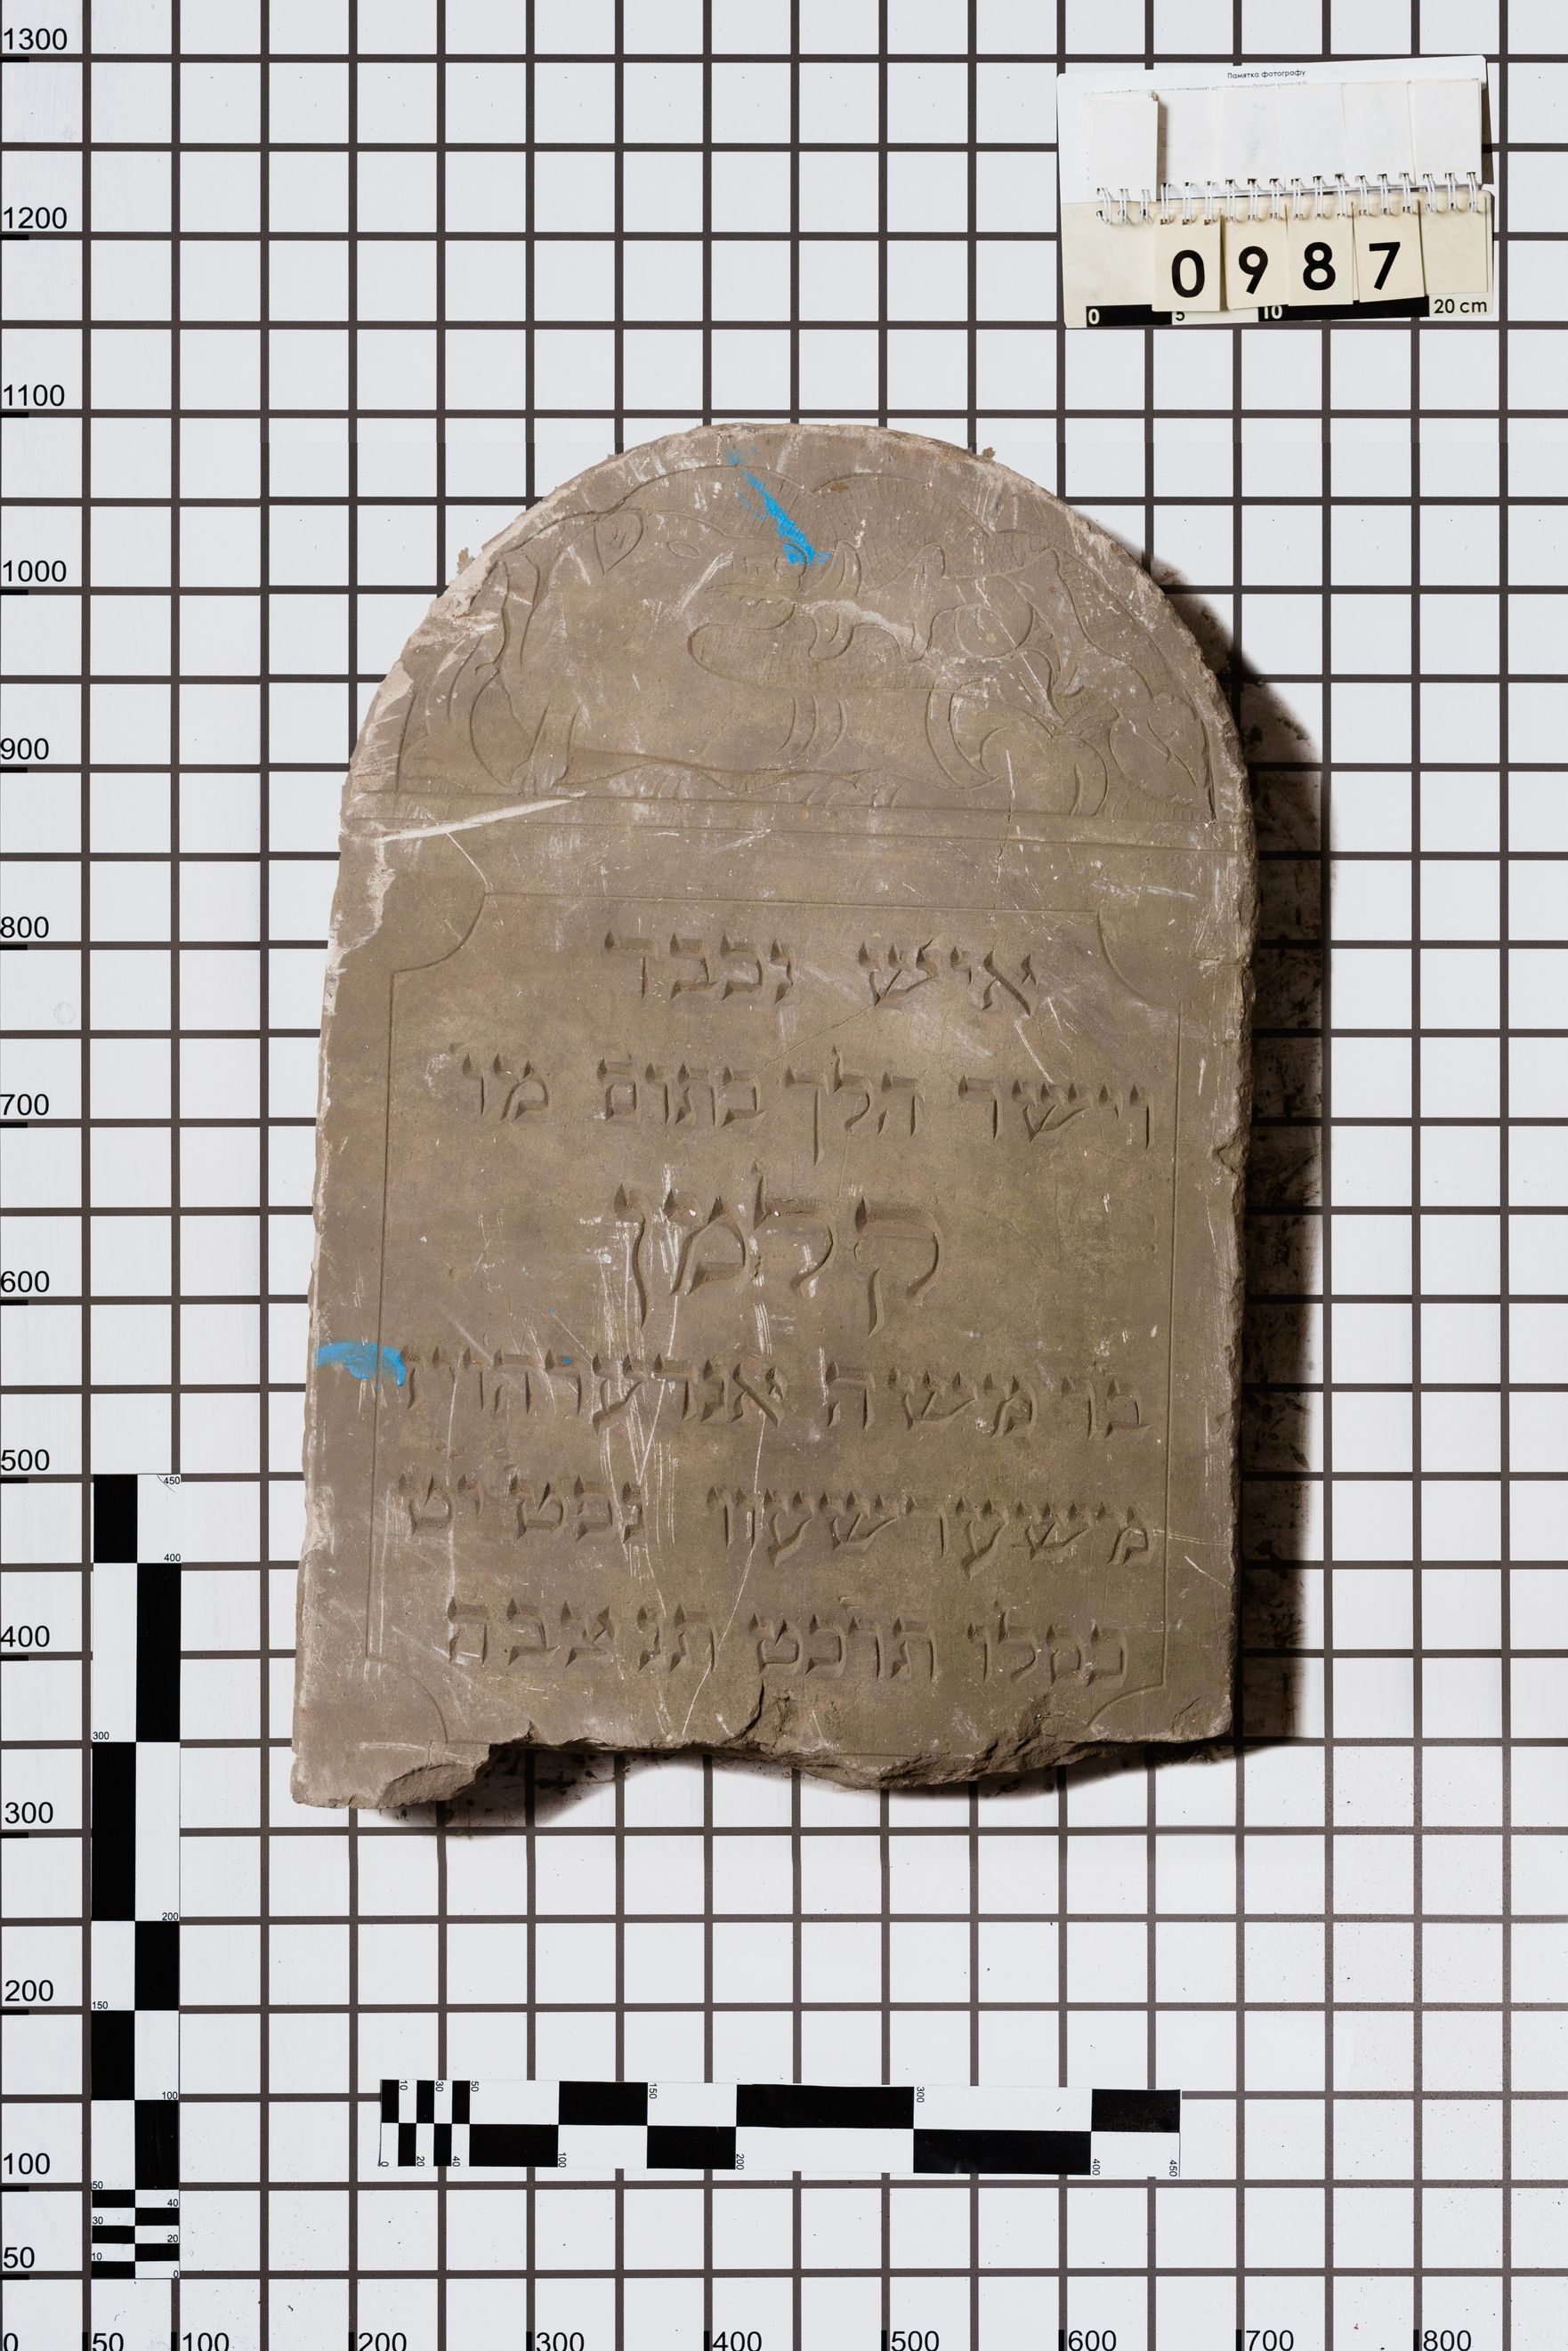 Памятка фотографу
0987
0 5 10 20 cm
איש נכבד
וישר הלך בתום מו'
קלמן
בן משה
נפט' יט
כסלו תרכט תנצבה
1300
1200
1100
1000
900
800
700
600
500
400
300
200
100
50
450
400
300
200
150
100
50
40
30
20
10
0
10 30 50 150 300
0 20 40 100 200 400 450
0 50 100 200 300 400 500 600 700 800